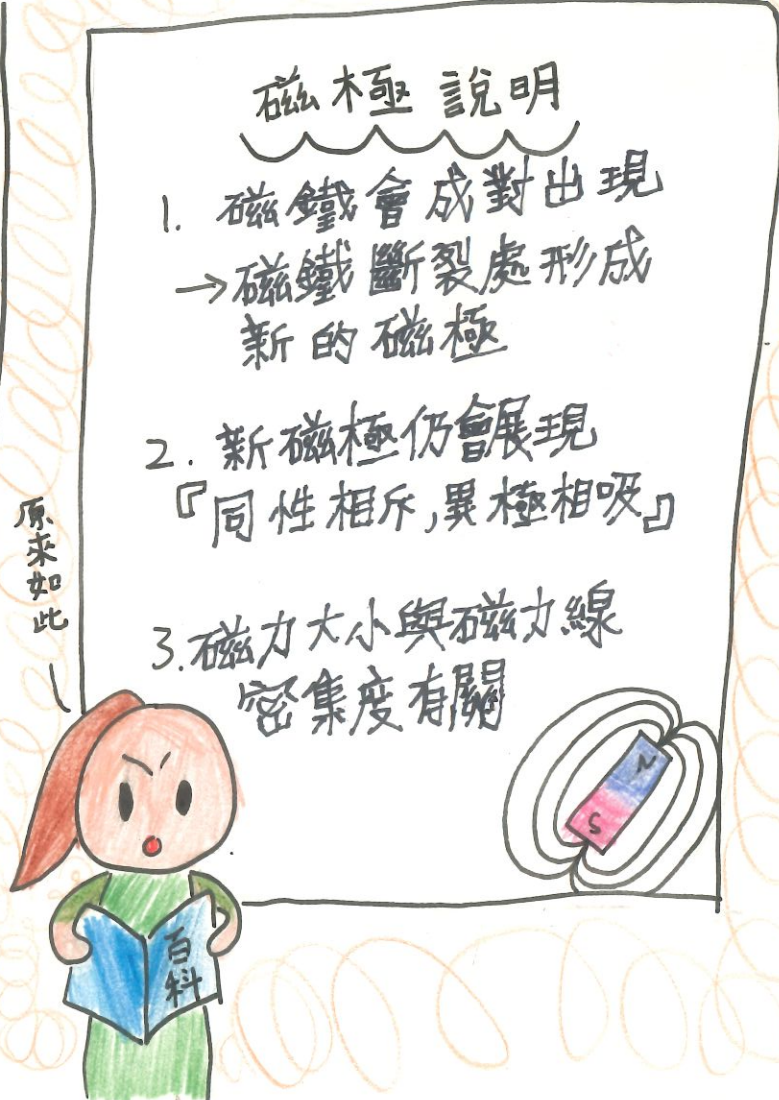 磁極說明
1. 磁鐵會成對出現
→磁鐵斷裂處形成
新的磁極
2. 新磁極仍會展現
『同性相斥,異極相吸』
3. 磁力大小與磁力線
密集度有關
原來如此
N
S
百科